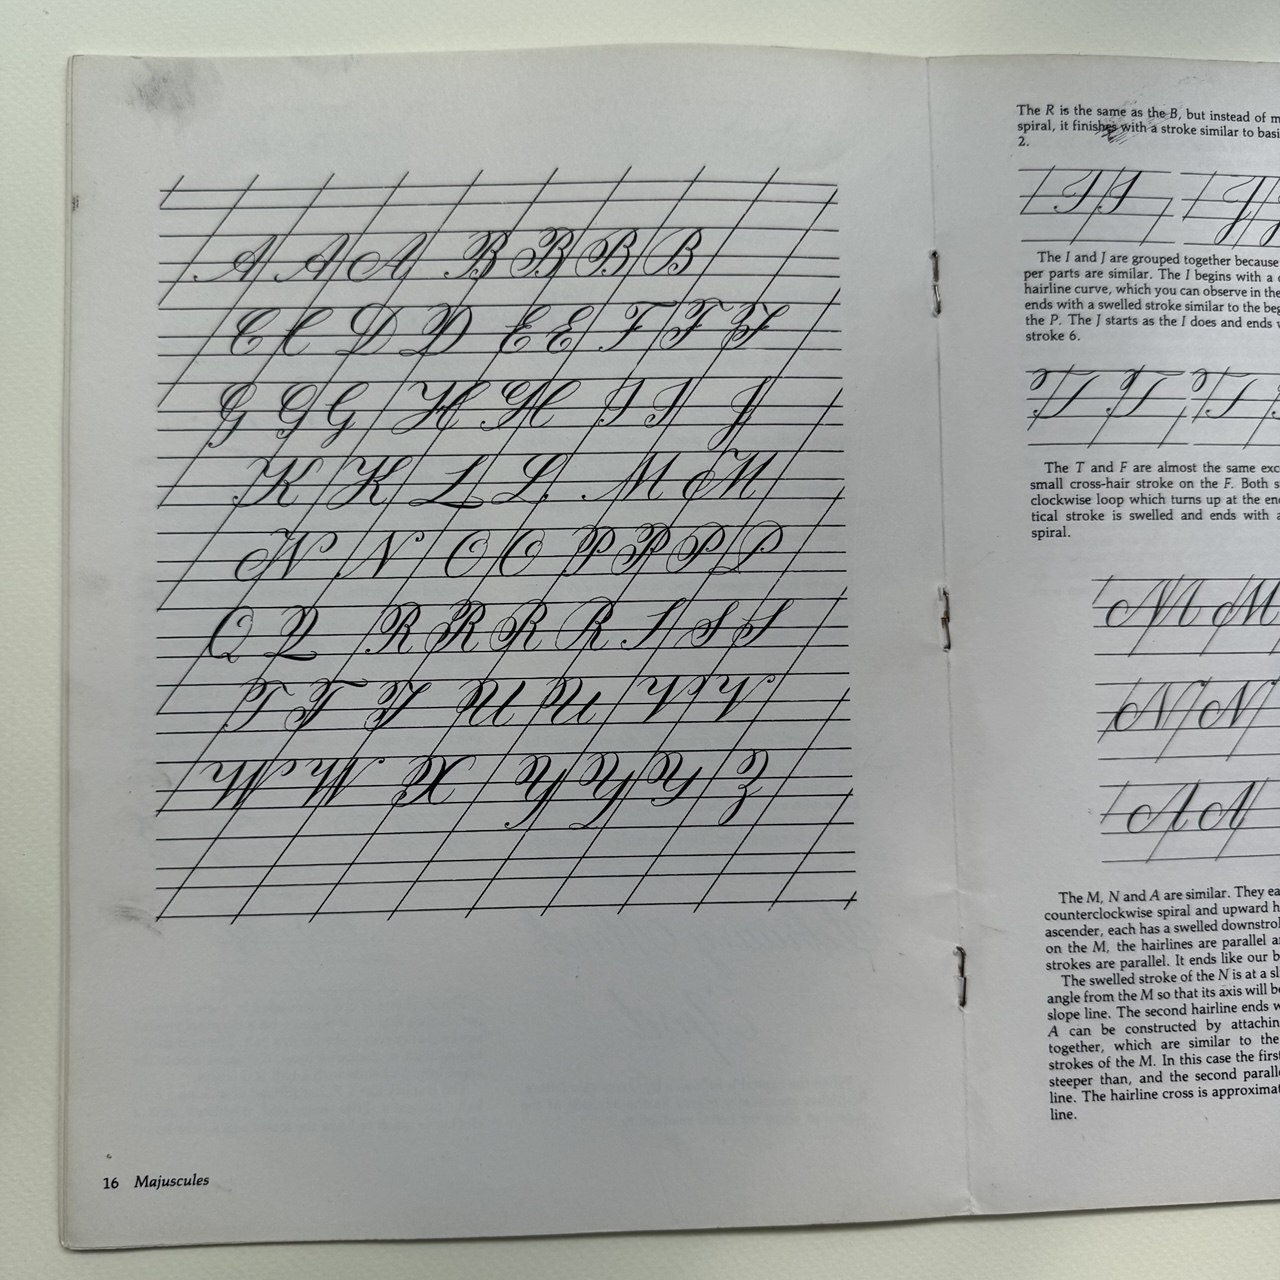 A A A B B B B
C C D D E E F F F
G G G H H I I J
K K L L M M
N N O O P P P P
Q Q R R R R S S S
T T F U U V V
W W X Y Y Y Z
16 Majuscules
The R is the same as the B, but instead of
spiral, it finishes with a stroke similar to
2.
I I J
The I and J are grouped together because
per parts are similar. The I begins with a
hairline curve, which you can observe in the
ends with a swelled stroke similar to the
the P. The J starts as the I does and ends
stroke 6.
T T F
The T and F are almost the same
small cross-hair stroke on the F. Both
clockwise loop which turns up at the
tical stroke is swelled and ends with a
spiral.
M M
N N
A A
The M, N and A are similar. They
counterclockwise spiral and upward
ascender, each has a swelled
on the M, the hairlines are parallel
strokes are parallel. It ends like our
The swelled stroke of the N is at a
angle from the M so that its axis will
slope line. The second hairline ends
A can be constructed by
together, which are similar to the
strokes of the M. In this case the
steeper than, and the second
line. The hairline cross is
line.